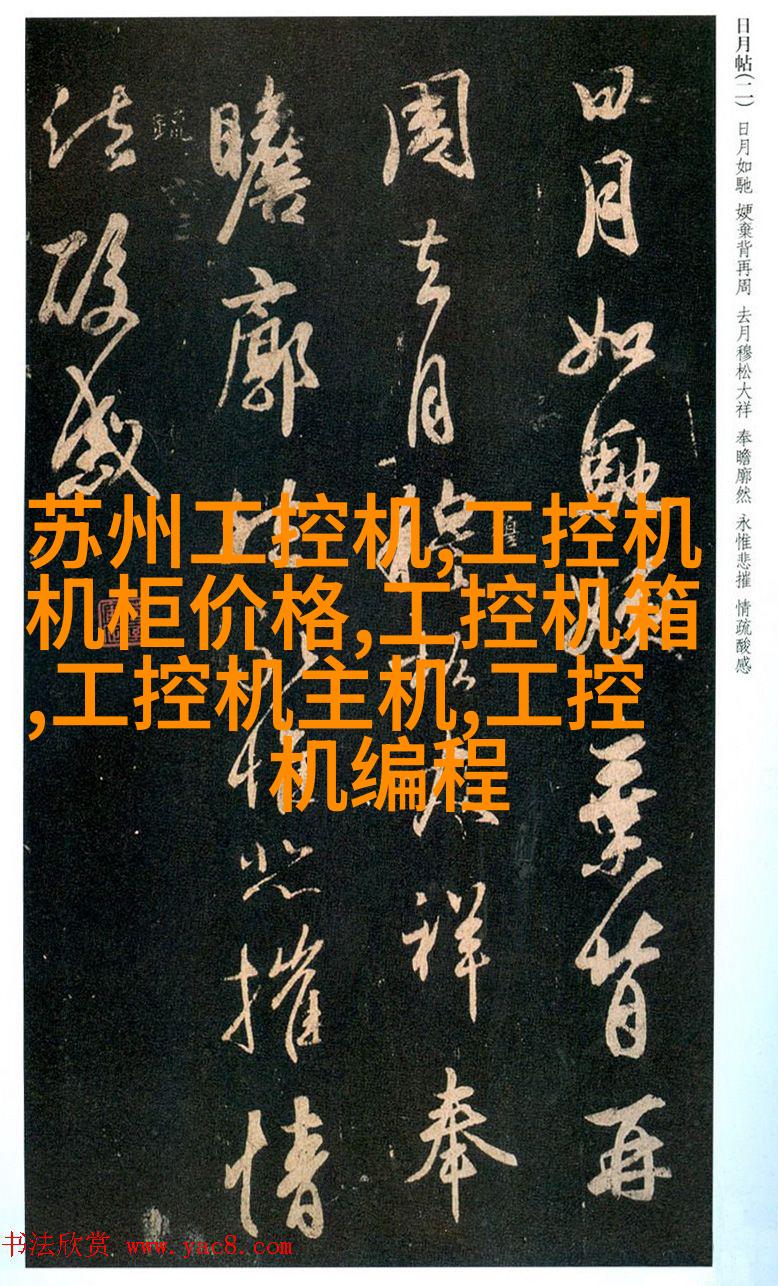 日月帖(二) 日月如馳 㛐棄背再周 去月穆松大祥 奉瞻廓然 永惟悲摧 情疏酸感
日月如馳㛐棄背再
周去月穆松大祥奉
瞻廓然永惟悲摧情
酸感
苏州工控机,工控机
机柜价格,工控机箱
,工控机主机,工控
机编程
书法欣赏 www.yac8.com